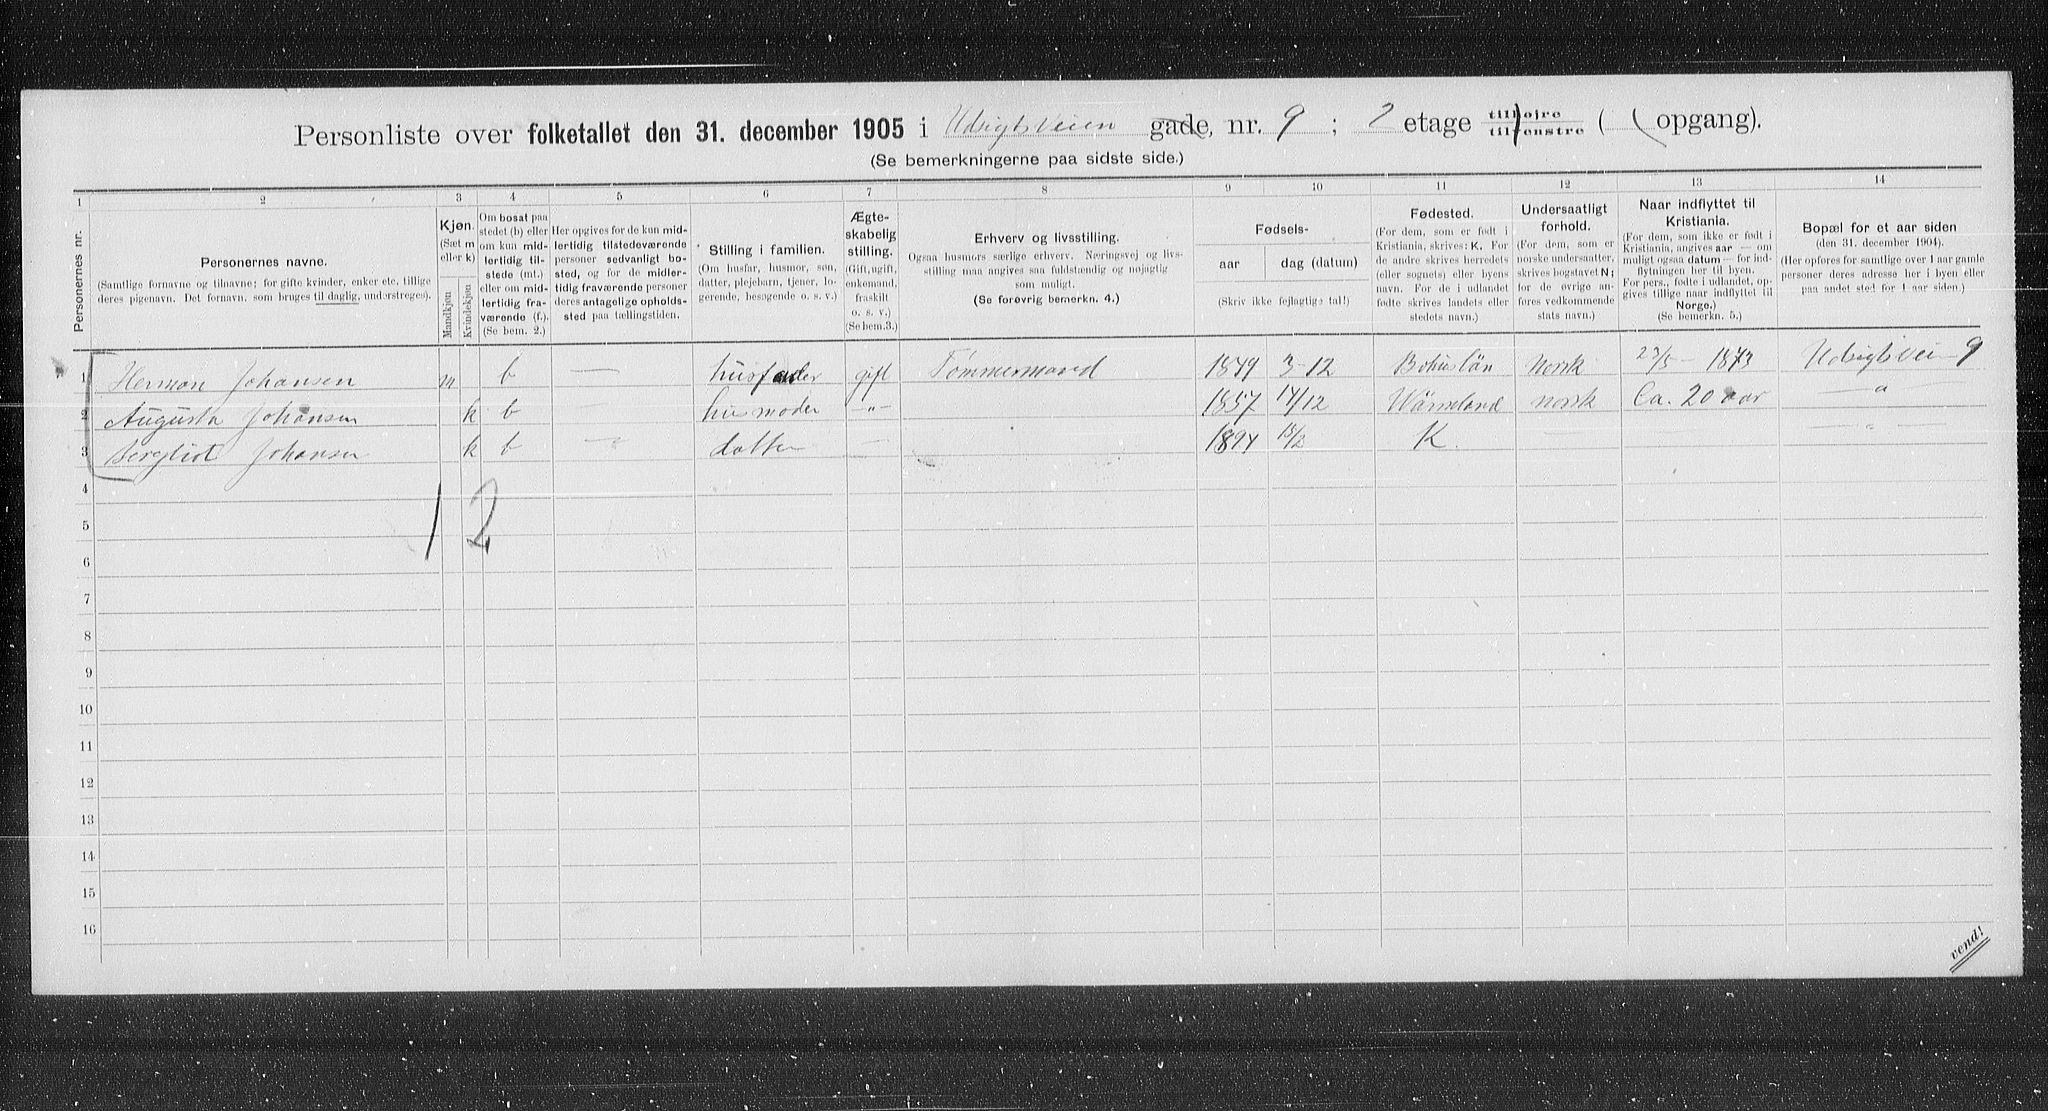 Personliste over folketallet den 31. december 1905 i Udsigtsveien gade, nr. 9 ; 2 etage tilhøjre tilvenstre ( opgang).
(Se bemerkningerne paa sidste side.)
1 2 3 4 5 6 7 8 9 10 11 12 13 14
Personernes nr.
Personernes navne.
(Samtlige fornavne og tilnavne; for gifte kvinder, enker etc. tillige
deres pigenavn. Det fornavn, som bruges til daglig, understreges).
Kjøn.
(Sæt m
eller k)
Mandkjøn
Kvindekjøn
Om bosat paa
stedet (b) eller
om kun mid-
lertidig til-
stede (mt.)
eller om mid-
lertidig fra-
værende (f.).
(Se bem. 2.)
Her opgives for de kun mid-
lertidig tilstedeværende
personer sedvanligt bo-
sted, og for de midler-
tidig fraværende personer
deres antagelige opholds-
sted paa tællingstiden.
Stilling i familien.
(Om husfar, husmor, søn,
datter, plejebarn, tjener, lo-
gerende, besøgende o. s. v.)
Ægte-
skabelig
stilling.
(Gift, ugift,
enkemand,
fraskilt
o. s. v.)
(Se bem.3.)
Erhverv og livsstilling.
Ogsaa husmors særlige erhverv. Næringsvej og livs-
stilling maa angives saa fuldstændig og nøjagtig
som muligt.
(Se forøvrig bemerkn. 4.)
Fødsels-
aar
dag (datum)
(Skriv ikke fejlagtige tal!)
Fødested.
(For dem, som er født i
Kristiania, skrives: K. For
de andre skrives herredets
(eller sognets) eller byens
navn. For de i udlandet
fødte skrives landets eller
stedets navn.)
Undersaatligt
forhold.
(For dem, som er
norske undersaatter,
skrives bogstavet N;
for de øvrige an-
føres vedkommende
stats navn.)
Naar indflyttet til
Kristiania.
(For dem, som ikke er født i
Kristiania, angives aar — om
muligt ogsaa datum — for ind-
flytningen her til byen.
For pers., fødte i udlandet, op-
gives tillige naar indflyttet til
Norge.)
(Se bemerkn. 5.)
Bopæl for et aar siden
(den 31. december 1904).
(Her opføres for samtlige over 1 aar gamle
personer deres adresse her i byen eller
paa andet sted for 1 aar siden.)
1 Herman Johansen m b — husfader gift Tømmermand 1849 3-12 Bohuslän Norsk 23/5 - 1873 Udsigtsvei - 9
2 Augusta Johansen k b — husmoder -"- 1857 14/12 Wärmeland norsk Ca. 20 aar — " —
3 Bergliot Johansen k b — datter — 1894 15/2 K. — — " —
4
1 2
5
6
7
8
9
10
11
12
13
14
15
16
vend!